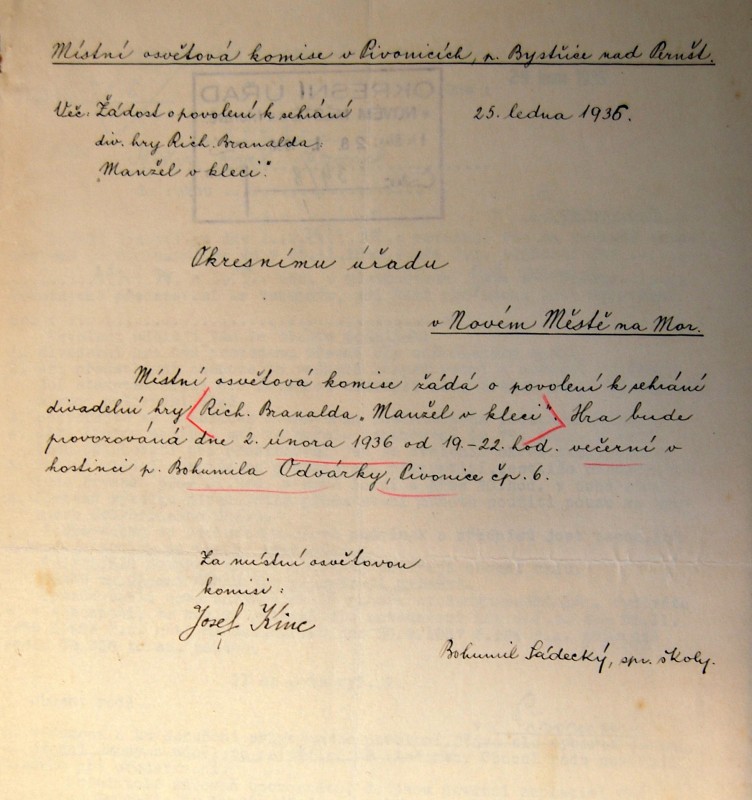 Místní osvětová komise v Pivonicích, p. Bystřice nad Pernšt.
Věc: Žádost o povolení k sehrání
25. ledna 1936.
div. hry Rich. Branalda:
Manžel v kleci".
Okresnímu úřadu
v Novém Městě na Mor.
Místní osvětová komise žádá o povolení k sehrání
divadelní hry Rich. Branalda „Manžel v kleci". Hra bude
provozováná dne 2. února 1936 od 19.-22. hod. večerní v
hostinci p. Bohumila Odvárky, Pivonice čp. 6.
Za místní osvětovou
komisi:
Josef Kinc
Bohumil Sádecký, spr. školy.
OKRESNÍ ÚŘAD